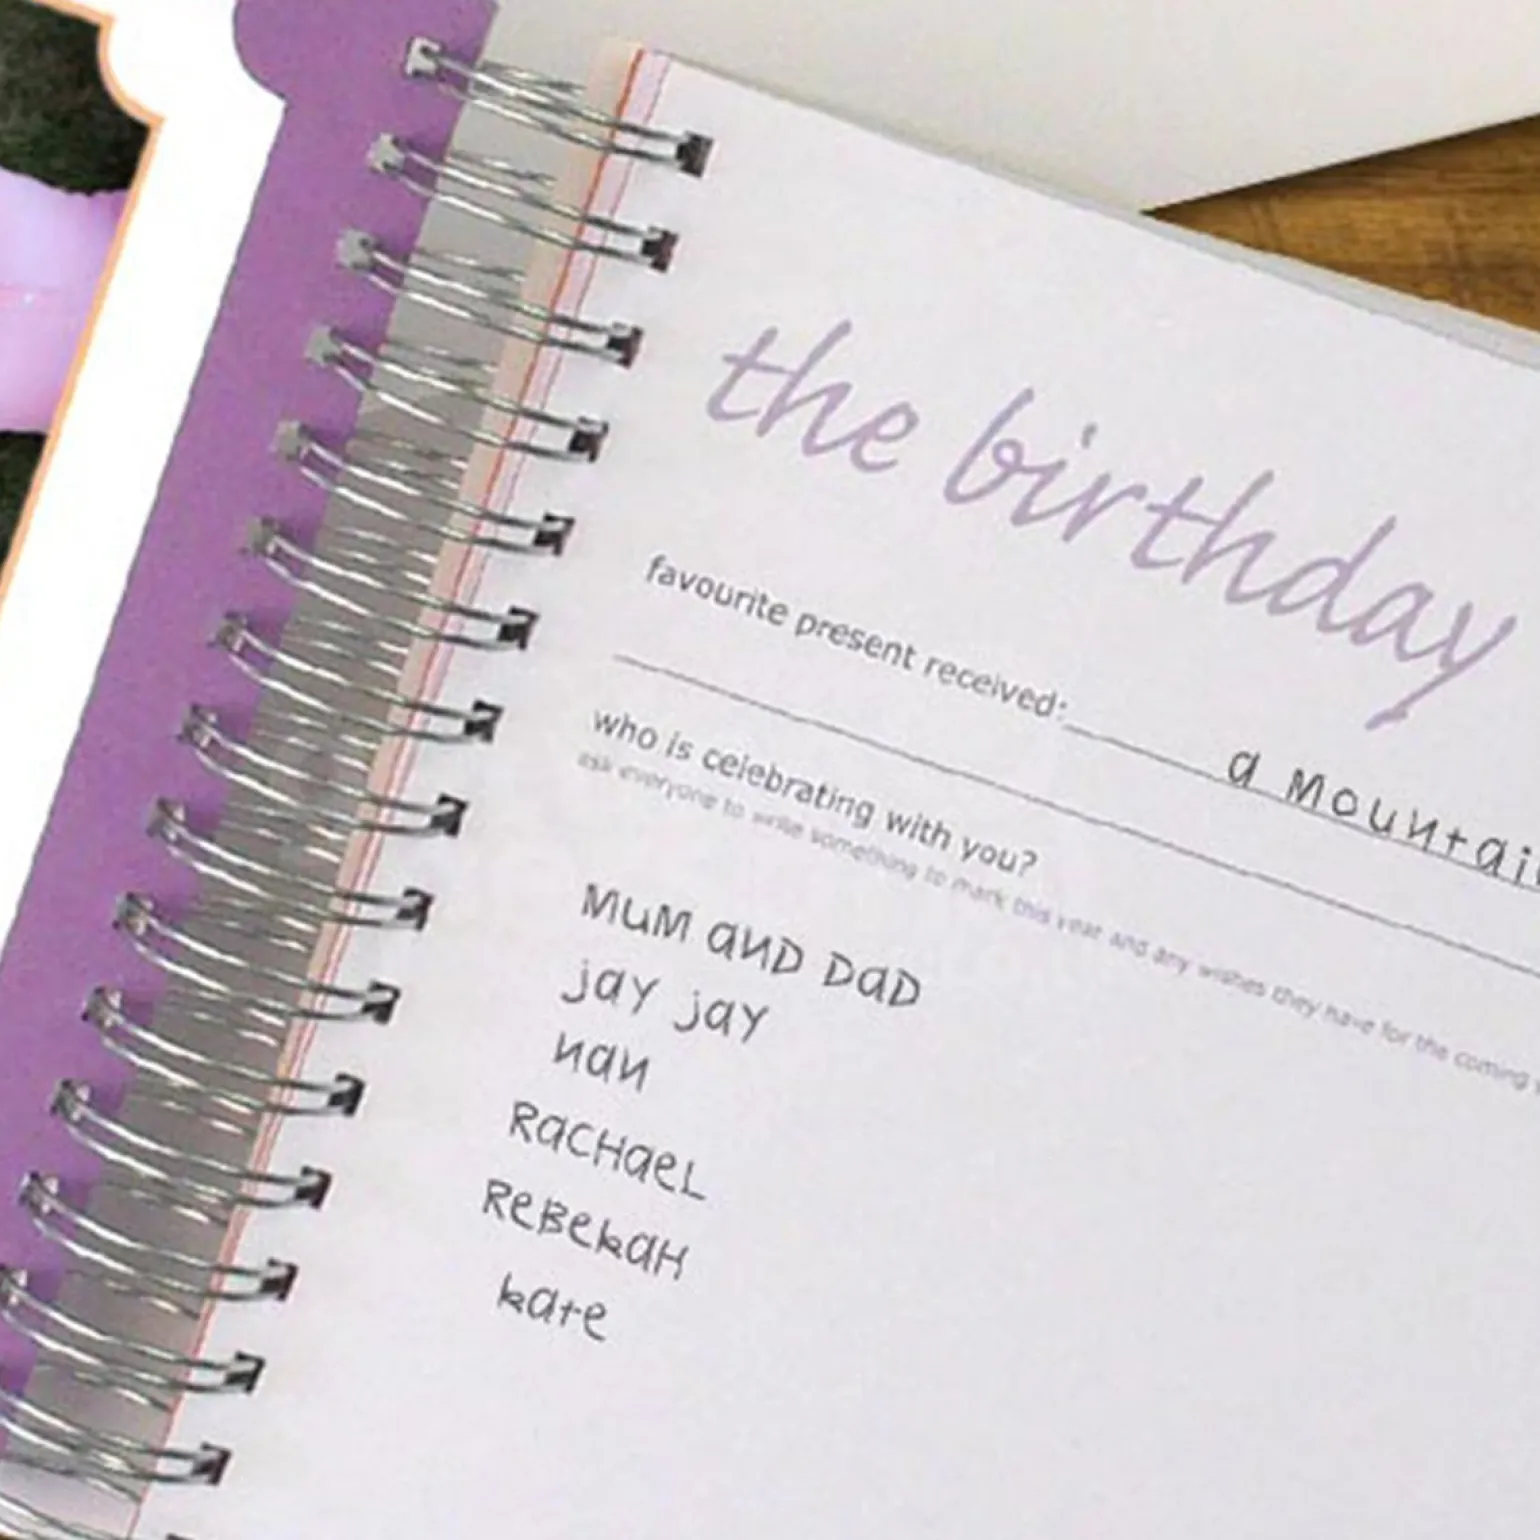 the birthday
favourite present received: a Mountai
who is celebrating with you?
ask everyone to write something to mark this year and any wishes they have for the coming
MuM aND DaD
jay jay
nan
RacHaeL
ReBekaH
kate